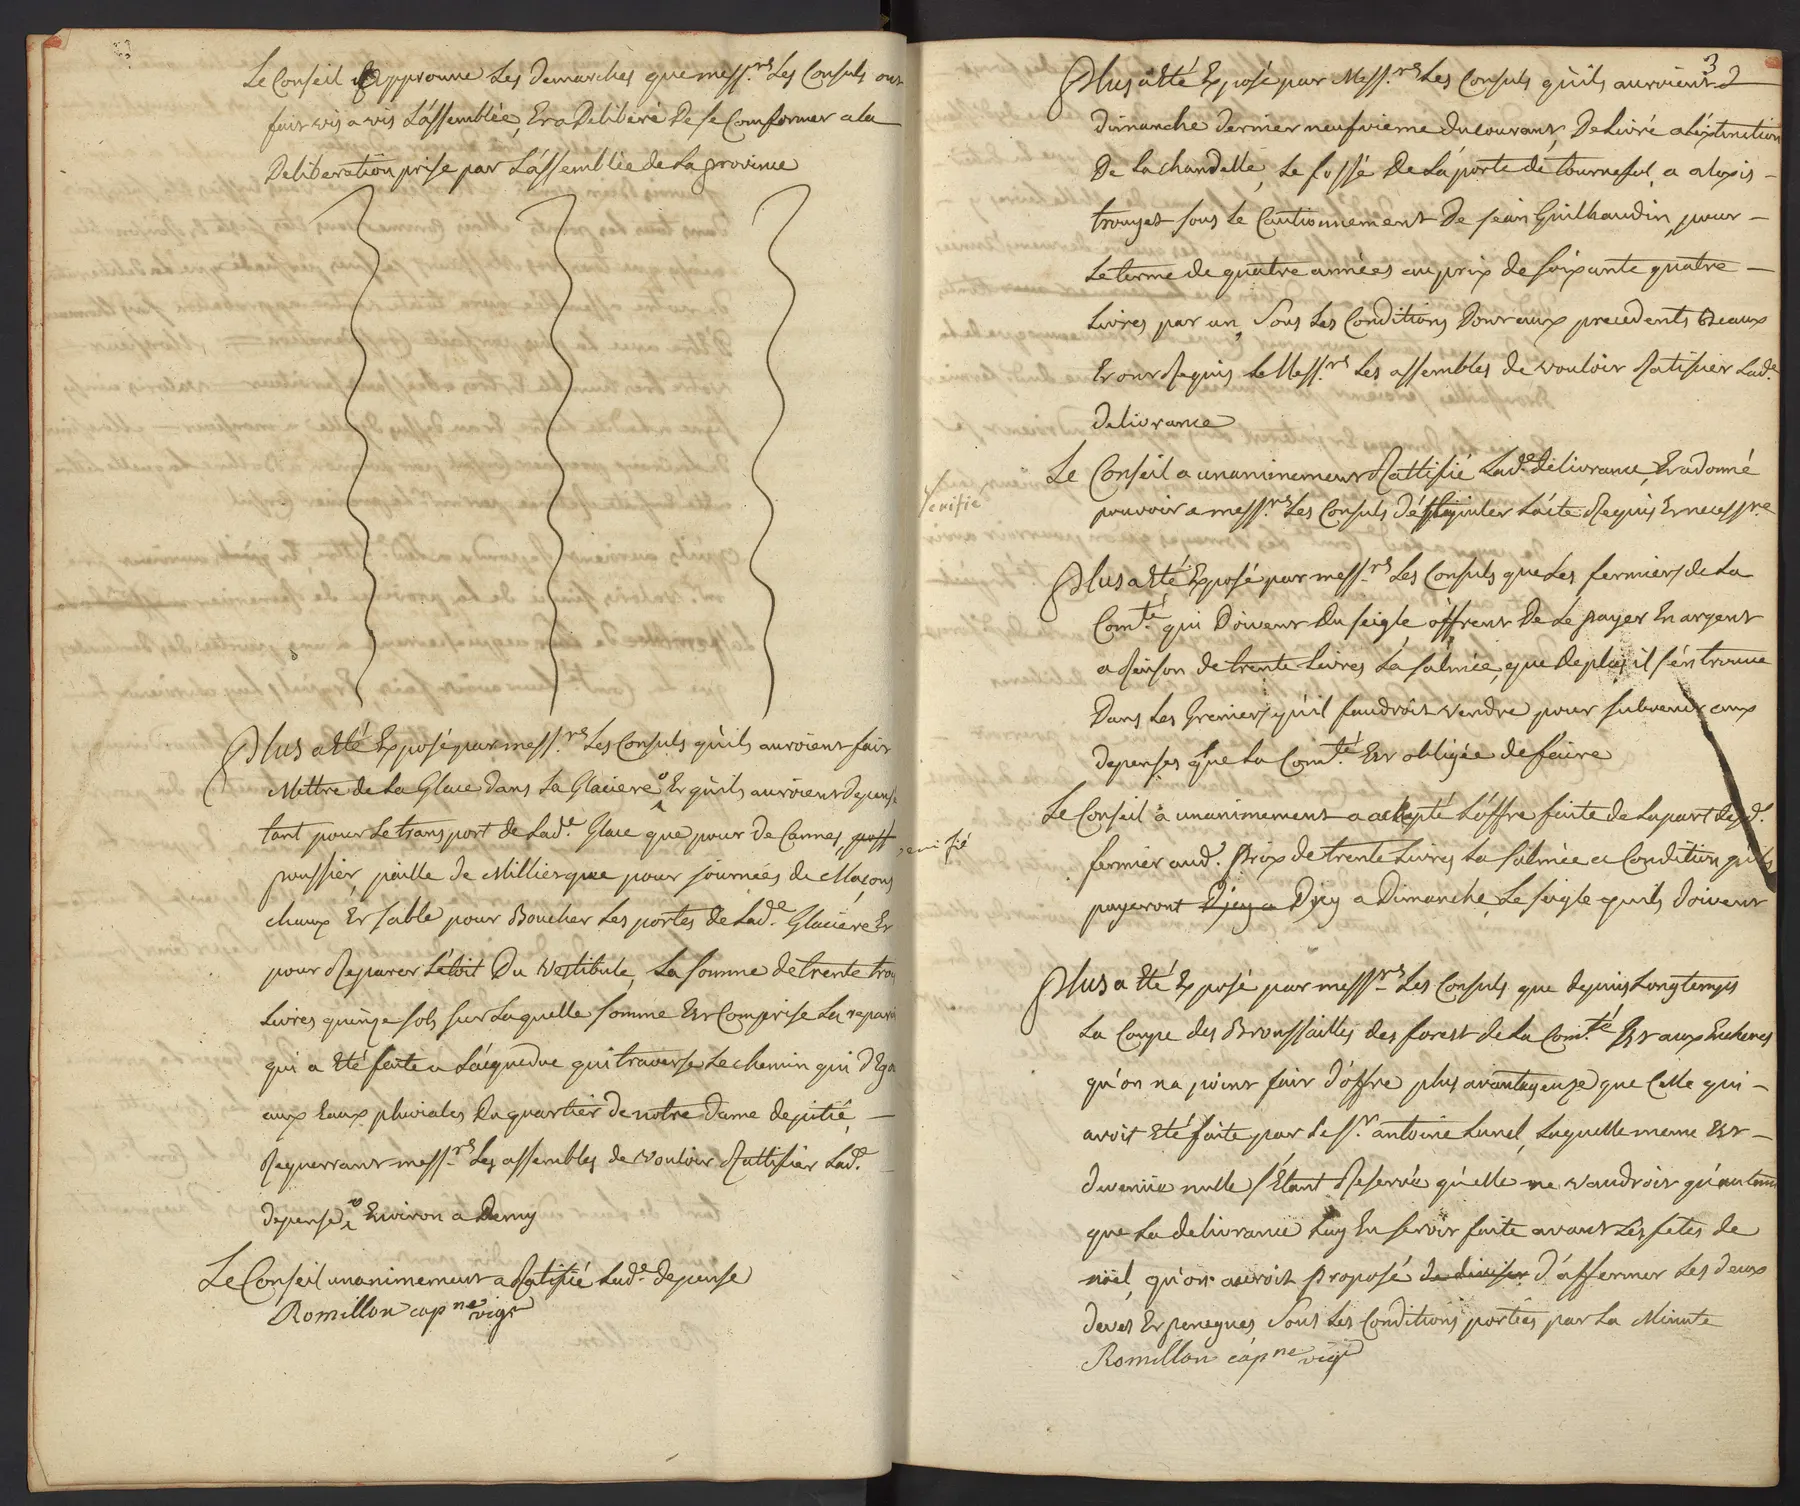 Le Conseil approuve Les Demarches que mess.rs Les Consuls ont
fait vis a vis L'assemblée, Et a Deliberé De se Comformer a la
Deliberation prise par L'assemblée de La province
Plus a Eté Exposé par mess.rs Les Consuls qu'ils auroient fait
Mettre de La Glace dans La Glaciere Et qu'ils auroient depensé
tant pour Le transport de Lad.e Glace que pour de Cannes,
poussier, paille de Millier que pour journées de Maçons
chaux Et sable pour Boucher Les portes de Lad.e Glaciere Et
pour Reparer Le toit Du Vestibule, La somme de trente trois
Livres quinze sols sur Laquelle somme Est Comprise La repara
qui a Eté faite a L'aqueduc qui traverse Le chemin qui
aux Eaux pluviales Du quartier de notre Dame de pitié, —
Requerrant mess.rs Les assemblés de vouloir Rattifier Lad.e
depense, Environ a Demy
Le Conseil unanimement a Ratifié Lad.e depense
Romillon cap.ne vigr
verifié
3
Plus a Eté Exposé par Mess.rs Les Consuls qu'ils auroient
dimanche dernier neufvieme du courant, De Livré a L'extinction
De La chandelle, Le fossé De La porte de tournefol, a alexis —
trouyet sous Le Cautionnement De jean Guilhaudin, pour —
Le terme de quatre années au prix de soixante quatre —
Livres par an, Sous Les Conditions Dont aux precedents Beaux
Et ont Requis Le Mess.rs Les assemblés de vouloir Ratifier Lad.e
delivrance
Le Conseil a unanimement Rattifié Lad.e delivrance, Et a donné
pouvoir a mess.rs Les Consuls De L'acte Requis Et necess.re
Verifié
Plus a Eté Exposé par mess.rs Les Consuls que Les fermiers de La
Com.té qui Doivent Du seigle offrent De Le payer En argent
a Raison de trente Livres La salmée, que De plus il s'en trouve
Dans Les Greniers qu'il faudroit vendre pour subvenir aux
depenses que La Com.té Est obligée de faire
Le Conseil a unanimement a accepté L'offre faite de La part desd.
fermier aud. Prix de trente Livres La salmée a Condition qu'ils
payeront D'icy a D'icy a Dimanche, Le seigle qu'ils Doivent
Plus a Eté Exposé par mess.rs Les Consuls que depuis Longtemps
La Coupe des Broussailles des forest de La Com.té Est aux Encheres
qu'on na point fait d'offre plus avantageuse que Celle qui —
avoit Eté faite par Le S.r antoine Lunel, Laquelle meme Est —
devenüe nulle s'Etant Reservé qu'elle ne vaudroit qu'autant
que La delivrance Luy En seroit faite avant Les fetes de
noël, qu'on auroit Proposé de diviser D'affermer Les deux
deves Et peneques, Sous Les Conditions portées par La Minute
Romillon cap.ne vigr